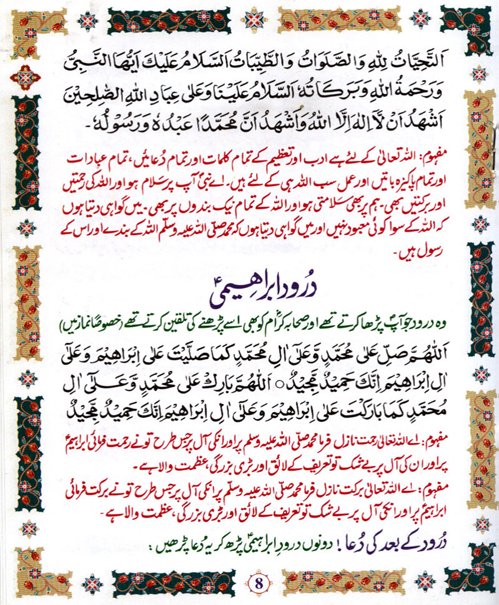 اَلتَّحِيَّاتُ لِلّٰهِ وَالصَّلَوَاتُ وَالطَّيِّبَاتُ اَلسَّلَامُ عَلَيْكَ اَيُّهَا النَّبِىُّ
وَرَحْمَةُ اللهِ وَبَرَكَاتُهٗ اَلسَّلَامُ عَلَيْنَا وَعَلٰى عِبَادِ اللهِ الصّٰلِحِيْنَ
اَشْهَدُ اَنْ لَّا اِلٰهَ اِلَّا اللهُ وَاَشْهَدُ اَنَّ مُحَمَّدًا عَبْدُهٗ وَرَسُوْلُهٗ۔
مفہوم: اللہ تعالیٰ کے لئے ہے ادب اور تعظیم کے تمام کلمات اور تمام دُعائیں، تمام عبادات
اور تمام پاکیزہ باتیں اور عمل سب اللہ ہی کے لئے ہیں۔ اے نبیؐ آپ پر سلام ہو اور اللہ کی رحمتیں
اور برکتیں بھی۔ ہم پر بھی سلامتی ہو اور اللہ کے تمام نیک بندوں پر بھی۔ میں گواہی دیتا ہوں
کہ اللہ کے سوا کوئی معبود نہیں اور میں گواہی دیتا ہوں کہ محمد صلی اللہ علیہ وسلم اللہ کے بندے اور اس کے
رسول ہیں۔
دُرود ابراہیمیؑ
وہ درود جو آپؐ پڑھا کرتے تھے اور صحابہ کرامؓ کو بھی اسے پڑھنے کی تلقین کرتے تھے (خصوصاً نماز میں)
اَللّٰهُمَّ صَلِّ عَلٰى مُحَمَّدٍ وَّعَلٰى اٰلِ مُحَمَّدٍ كَمَا صَلَّيْتَ عَلٰى اِبْرَاهِيْمَ وَعَلٰى
اٰلِ اِبْرَاهِيْمَ اِنَّكَ حَمِيْدٌ مَّجِيْدٌ ○ اَللّٰهُمَّ بَارِكْ عَلٰى مُحَمَّدٍ وَّعَلٰى اٰلِ
مُحَمَّدٍ كَمَا بَارَكْتَ عَلٰى اِبْرَاهِيْمَ وَعَلٰى اٰلِ اِبْرَاهِيْمَ اِنَّكَ حَمِيْدٌ مَّجِيْدٌ
مفہوم: اے اللہ تعالیٰ رحمت نازل فرما محمد صلی اللہ علیہ وسلم پر اور انکی آل پر جس طرح تو نے رحمت فرمائی ابراہیمؑ
پر اور ان کی آل پر بے شک تو تعریف کے لائق اور بڑی بزرگی عظمت والا ہے۔
مفہوم: اے اللہ تعالیٰ برکت نازل فرما محمد صلی اللہ علیہ وسلم پر اور انکی آل پر جس طرح تو نے برکت فرمائی
ابراہیمؑ پر اور انکی آل پر بے شک تو تعریف کے لائق اور بڑی بزرگی، عظمت والا ہے۔
دُرود کے بعد کی دُعا! دونوں درود ابراہیمیؑ پڑھ کر یہ دُعا پڑھیں:
8